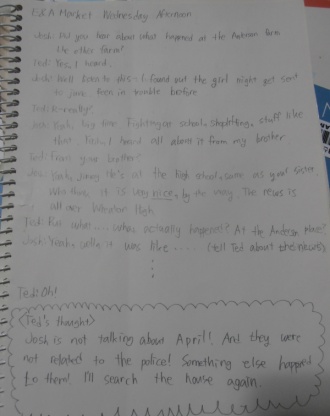 Ext. A Market Wednesday Afternoon
Josh: Did you hear about what happened at the Anderson Farm
the other farm?
Ted: Yes, I heard.
Josh: Well listen to this - I found out the girl might get sent
to juve been in trouble before
Ted: R-really?
Josh: Yeah, big time Fighting at school, shoplifting, stuff like
that Ted, I heard all about it from my brother
Ted: From your brother
Josh: Yeah, Jimmy. He's at the high school, same as your sister
who, it is very nice, by the way. The news is
all over Winston High
Ted: But what.... what actually happened? At the Anderson place?
Josh: Yeah, well, it was like..... (tell Ted about the news)
Ted: Oh!
<Ted's thought>
Josh is not talking about April! And they were
not related to the police! Something else happened
to them! I'll search the house again.